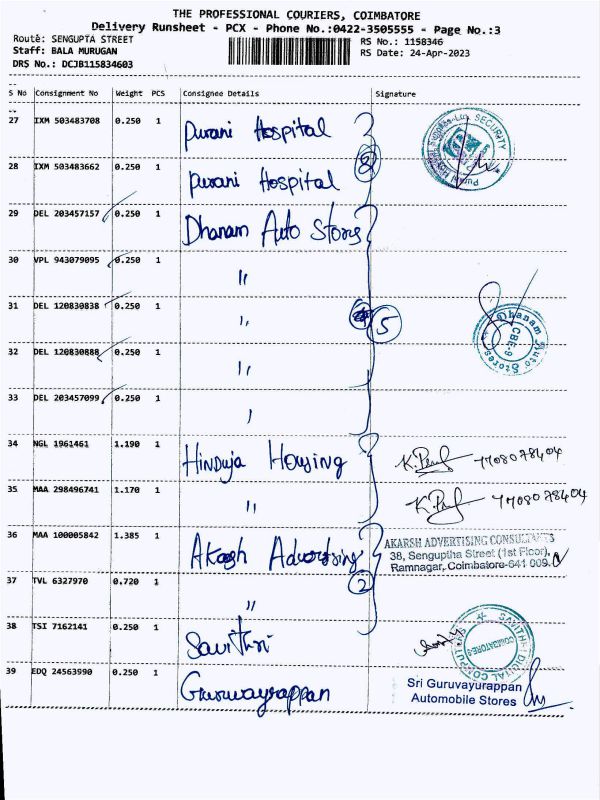 THE PROFESSIONAL COURIERS, COIMBATORE
Delivery Runsheet - PCX - Phone No.:0422-3505555 - Page No.:3
Route: SENGUPTA STREET
RS No.: 1158346
Staff: BALA MURUGAN
RS Date: 24-Apr-2023
DRS No.: DCJB115834603
S No Consignment No Weight PCS Consignee Details Signature
27 IXM 503483708 0.250 1 Purani Hospital
SECURITY
2
28 IXM 503483662 0.250 1 Purani Hospital
29 DEL 203457157 0.250 1 Dhanam Auto Stores
30 VPL 943079095 0.250 1 "
31 DEL 120830838 0.250 1 "
5
Dhanam Auto Stores
CBE-9
32 DEL 120830888 0.250 1 "
33 DEL 203457099 0.250 1 "
34 NGL 1961461 1.190 1 Hinduja Housing 7708078404
35 MAA 298496741 1.170 1 " 7708078404
36 MAA 100005842 1.385 1 Akash Advertising
AKARSH ADVERTISING CONSULTANTS
38, Senguptha Street (1st Floor),
Ramnagar, Coimbatore-641 009.
37 TVL 6327970 0.720 1 "
2
38 TSI 7162141 0.250 1 Savithri
SAVITHRI DIGITAL COMPUTERS
COIMBATORE-9
39 EDQ 24563990 0.250 1 Guruvayrappan
Sri Guruvayurappan
Automobile Stores